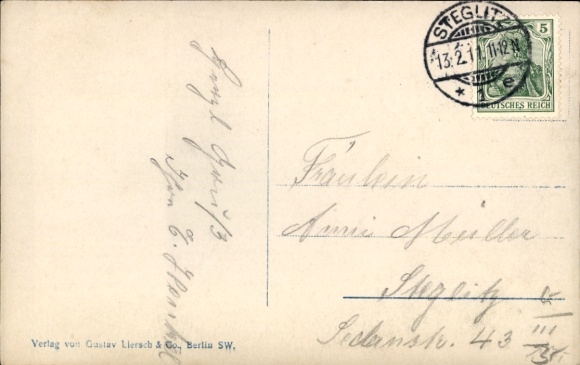 STEGLITZ
13.2.11 11-12 N.
* 1 e
5
DEUTSCHES REICH
Herzl. Gruß
Ihre E.
Fräulein
Anni Müller
Steglitz
Sedanstr. 43
III
Verlag von Gustav Liersch & Co., Berlin SW.